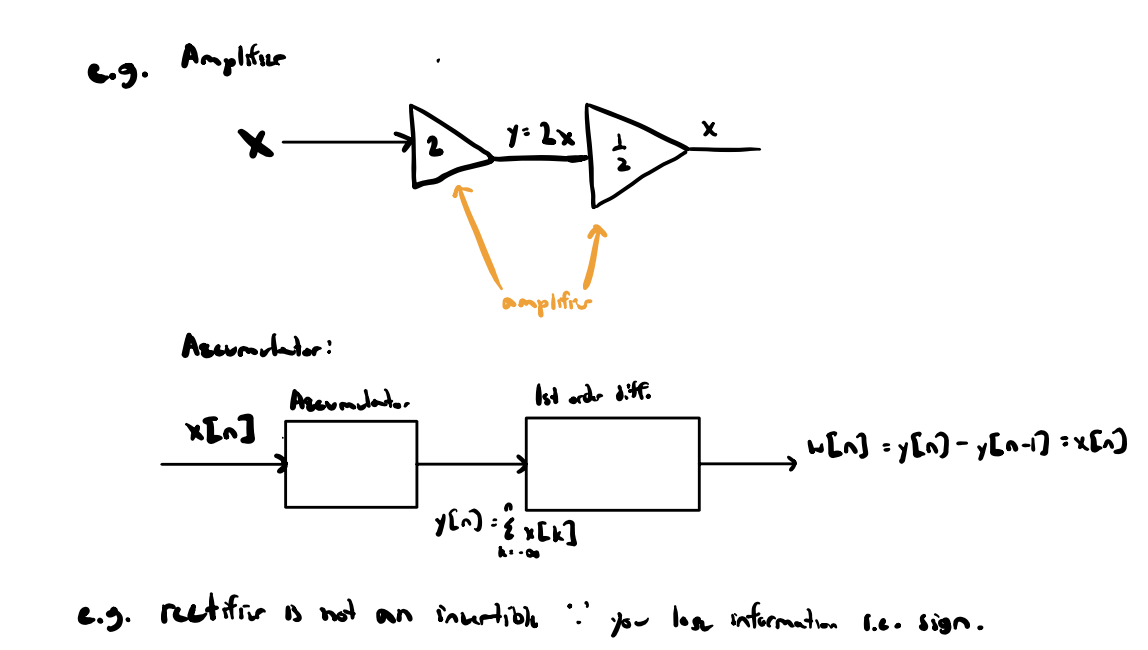 e.g. Amplifier
X 2 y = 2x 1/2 x
amplifier
Accumulator:
Accumulator 1st order diff.
x[n] w[n] = y[n] - y[n-1] = x[n]
y[n] = n Σ k=-∞ x[k]
e.g. rectifier is not an invertible ∵ you lose information i.e. sign.